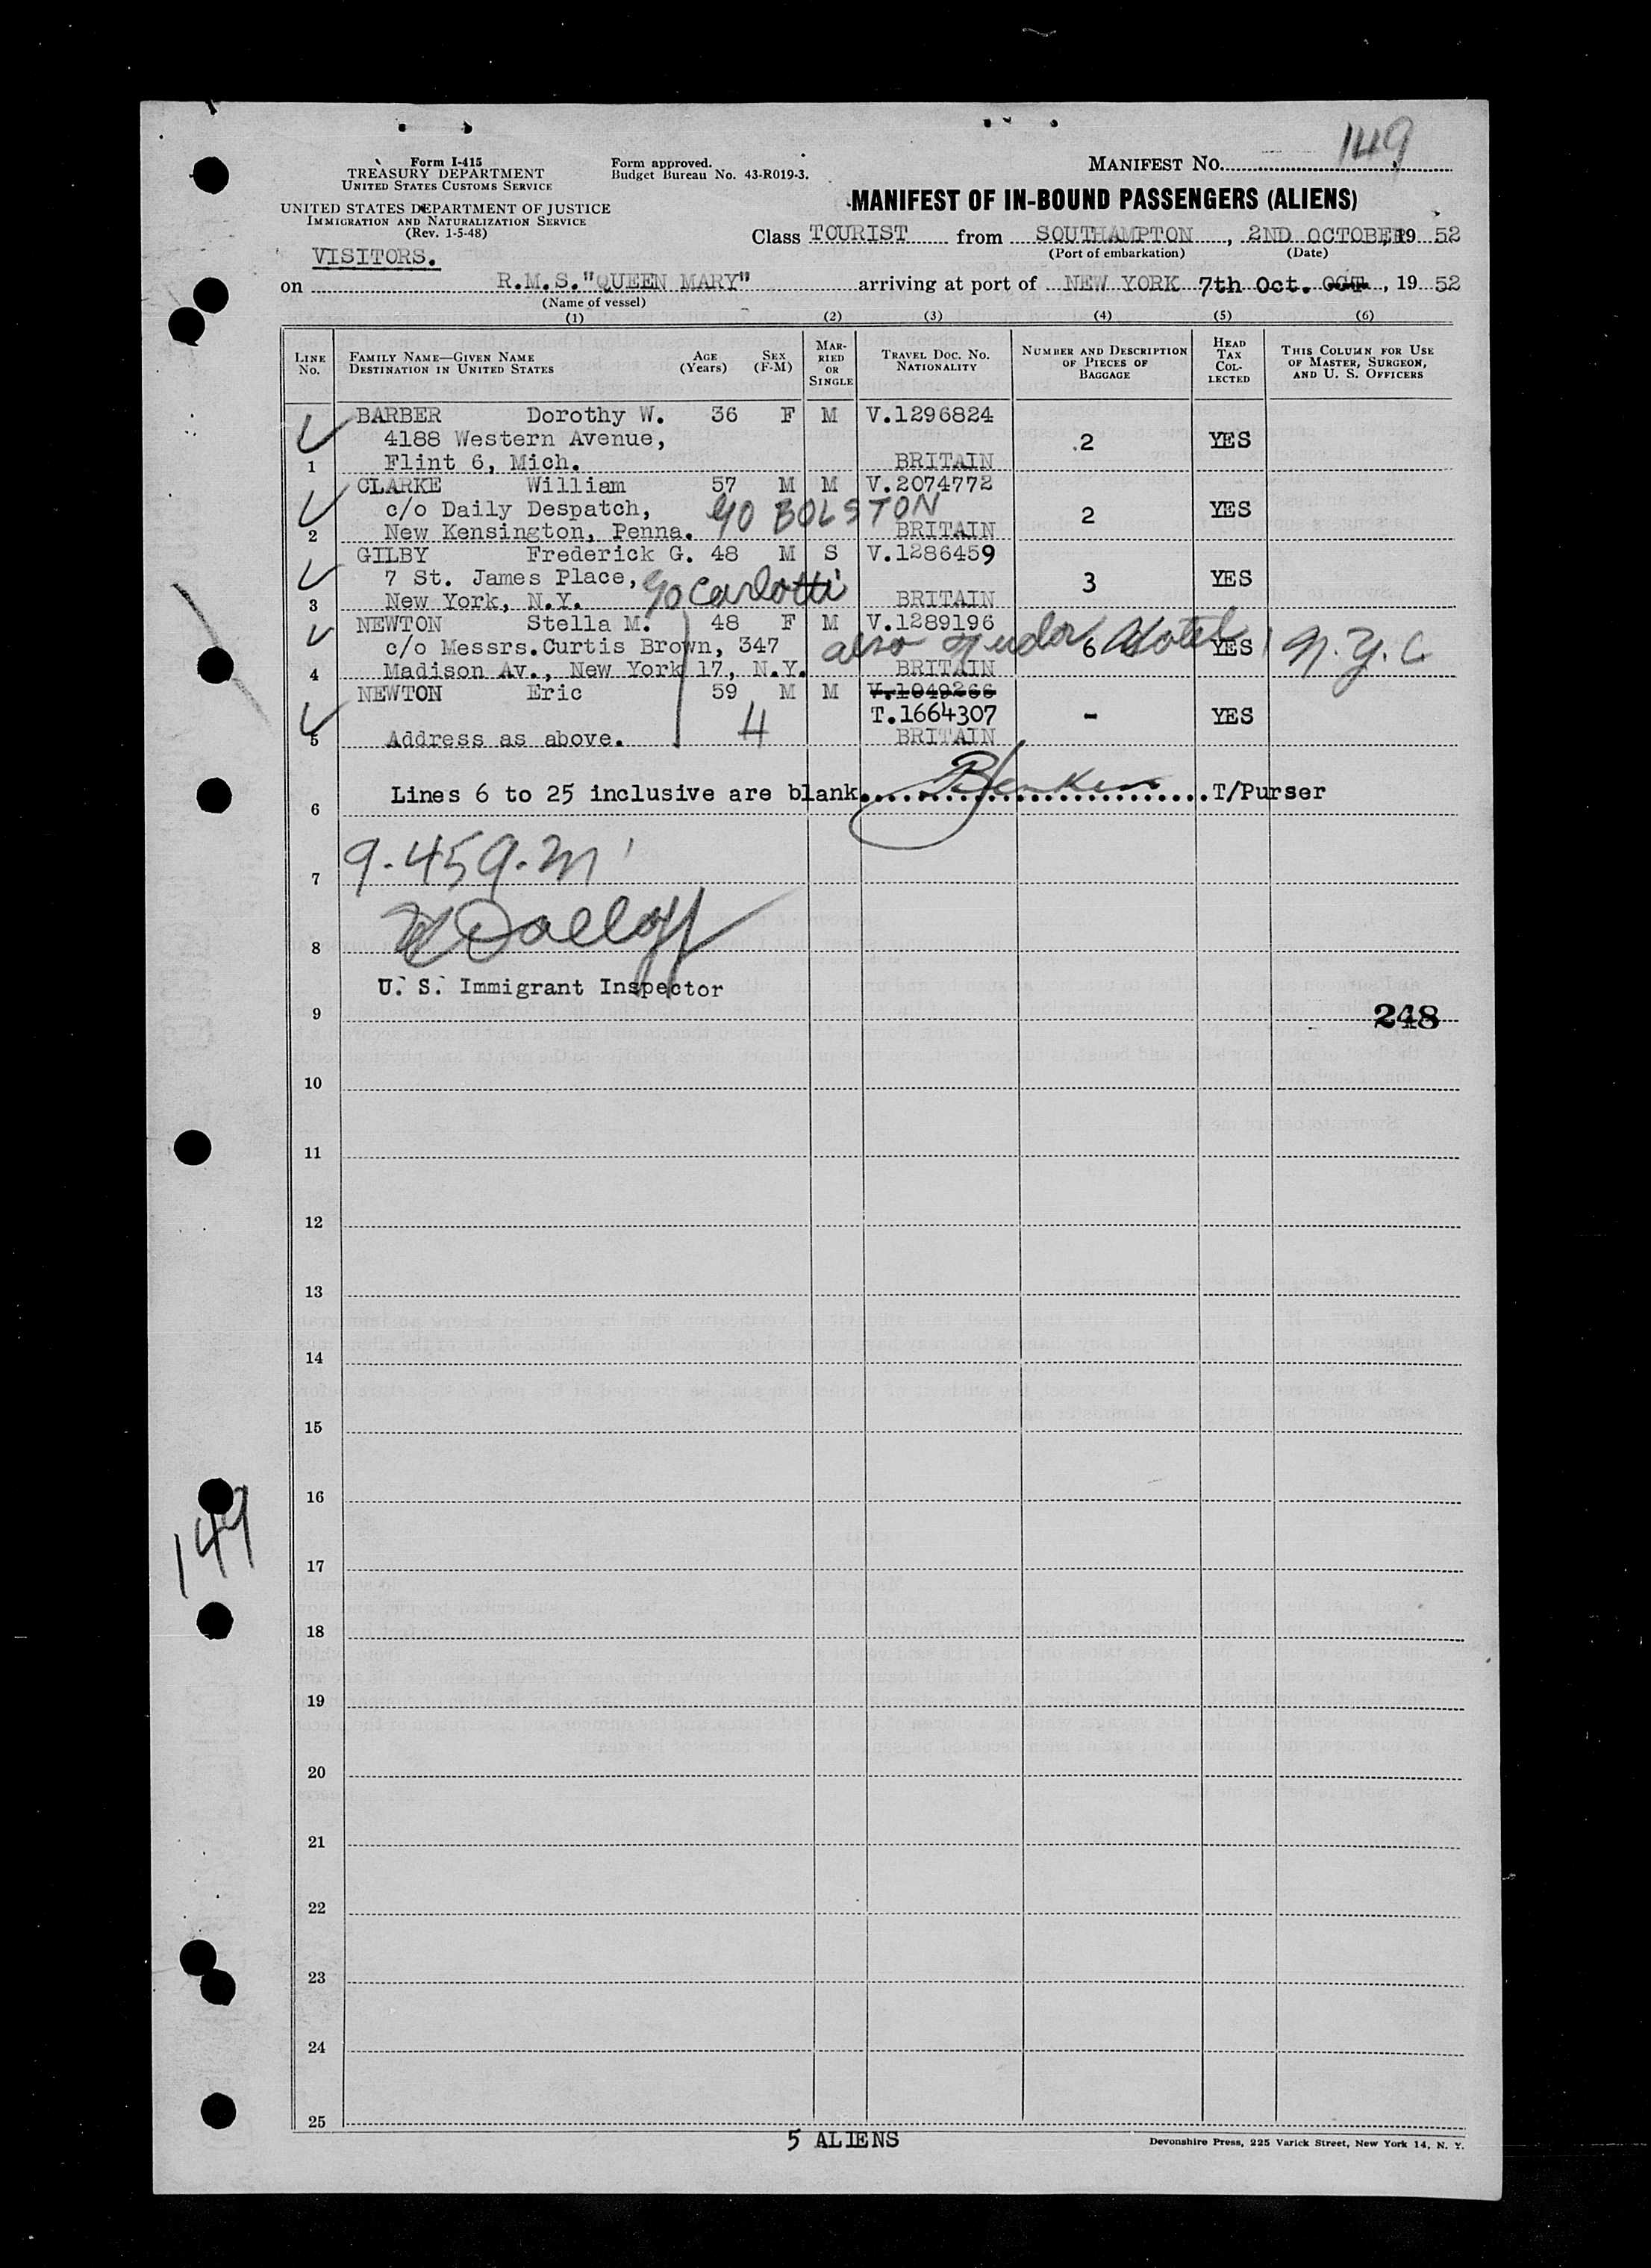 149
Form I-415
TREASURY DEPARTMENT
UNITED STATES CUSTOMS SERVICE
Form approved.
Budget Bureau No. 43-R019-3.
MANIFEST NO.
MANIFEST OF IN-BOUND PASSENGERS (ALIENS)
UNITED STATES DEPARTMENT OF JUSTICE
IMMIGRATION AND NATURALIZATION SERVICE
(Rev. 1-5-48)
Class TOURIST from SOUTHAMPTON, 2ND OCTOBER, 19 52
(Port of embarkation) (Date)
VISITORS.
on R.M.S."QUEEN MARY" arriving at port of NEW YORK 7th Oct. OCT, 19 52
(Name of vessel)
(1) (2) (3) (4) (5) (6)
LINE NO. FAMILY NAME—GIVEN NAME DESTINATION IN UNITED STATES AGE (Years) SEX (F-M) MARRIED OR SINGLE TRAVEL DOC. NO. NATIONALITY NUMBER AND DESCRIPTION OF PIECES OF BAGGAGE HEAD TAX COLLECTED THIS COLUMN FOR USE OF MASTER, SURGEON, AND U. S. OFFICERS
BARBER Dorothy W. 36 F M V.1296824
4188 Western Avenue, 2 YES
1 Flint 6, Mich. BRITAIN
CLARKE William 57 M M V.2074772
c/o Daily Despatch, c/o BOLSTON 2 YES
2 New Kensington, Penna. BRITAIN
GILBY Frederick G. 48 M S V.1286459
7 St. James Place, c/o Carlotti 3 YES
3 New York, N.Y. BRITAIN
NEWTON Stella M. 48 F M V.1289196
c/o Messrs.Curtis Brown, 347 also Tudor Hotel N.Y.C 6 YES
4 Madison Av., New York 17, N.Y. BRITAIN
NEWTON Eric 59 M M V.1049266
T.1664307 - YES
5 Address as above. 4 BRITAIN
Lines 6 to 25 inclusive are blank. T/Purser
6
9.45 a.m
7
8
U. S. Immigrant Inspector
9 248
10
11
12
13
14
15
16
149
17
18
19
20
21
22
23
24
25
5 ALIENS
Devonshire Press, 225 Varick Street, New York 14, N. Y.